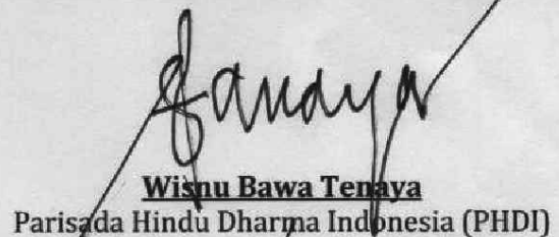 Wisnu Bawa Tenaya
Parisada Hindu Dharma Indonesia (PHDI)